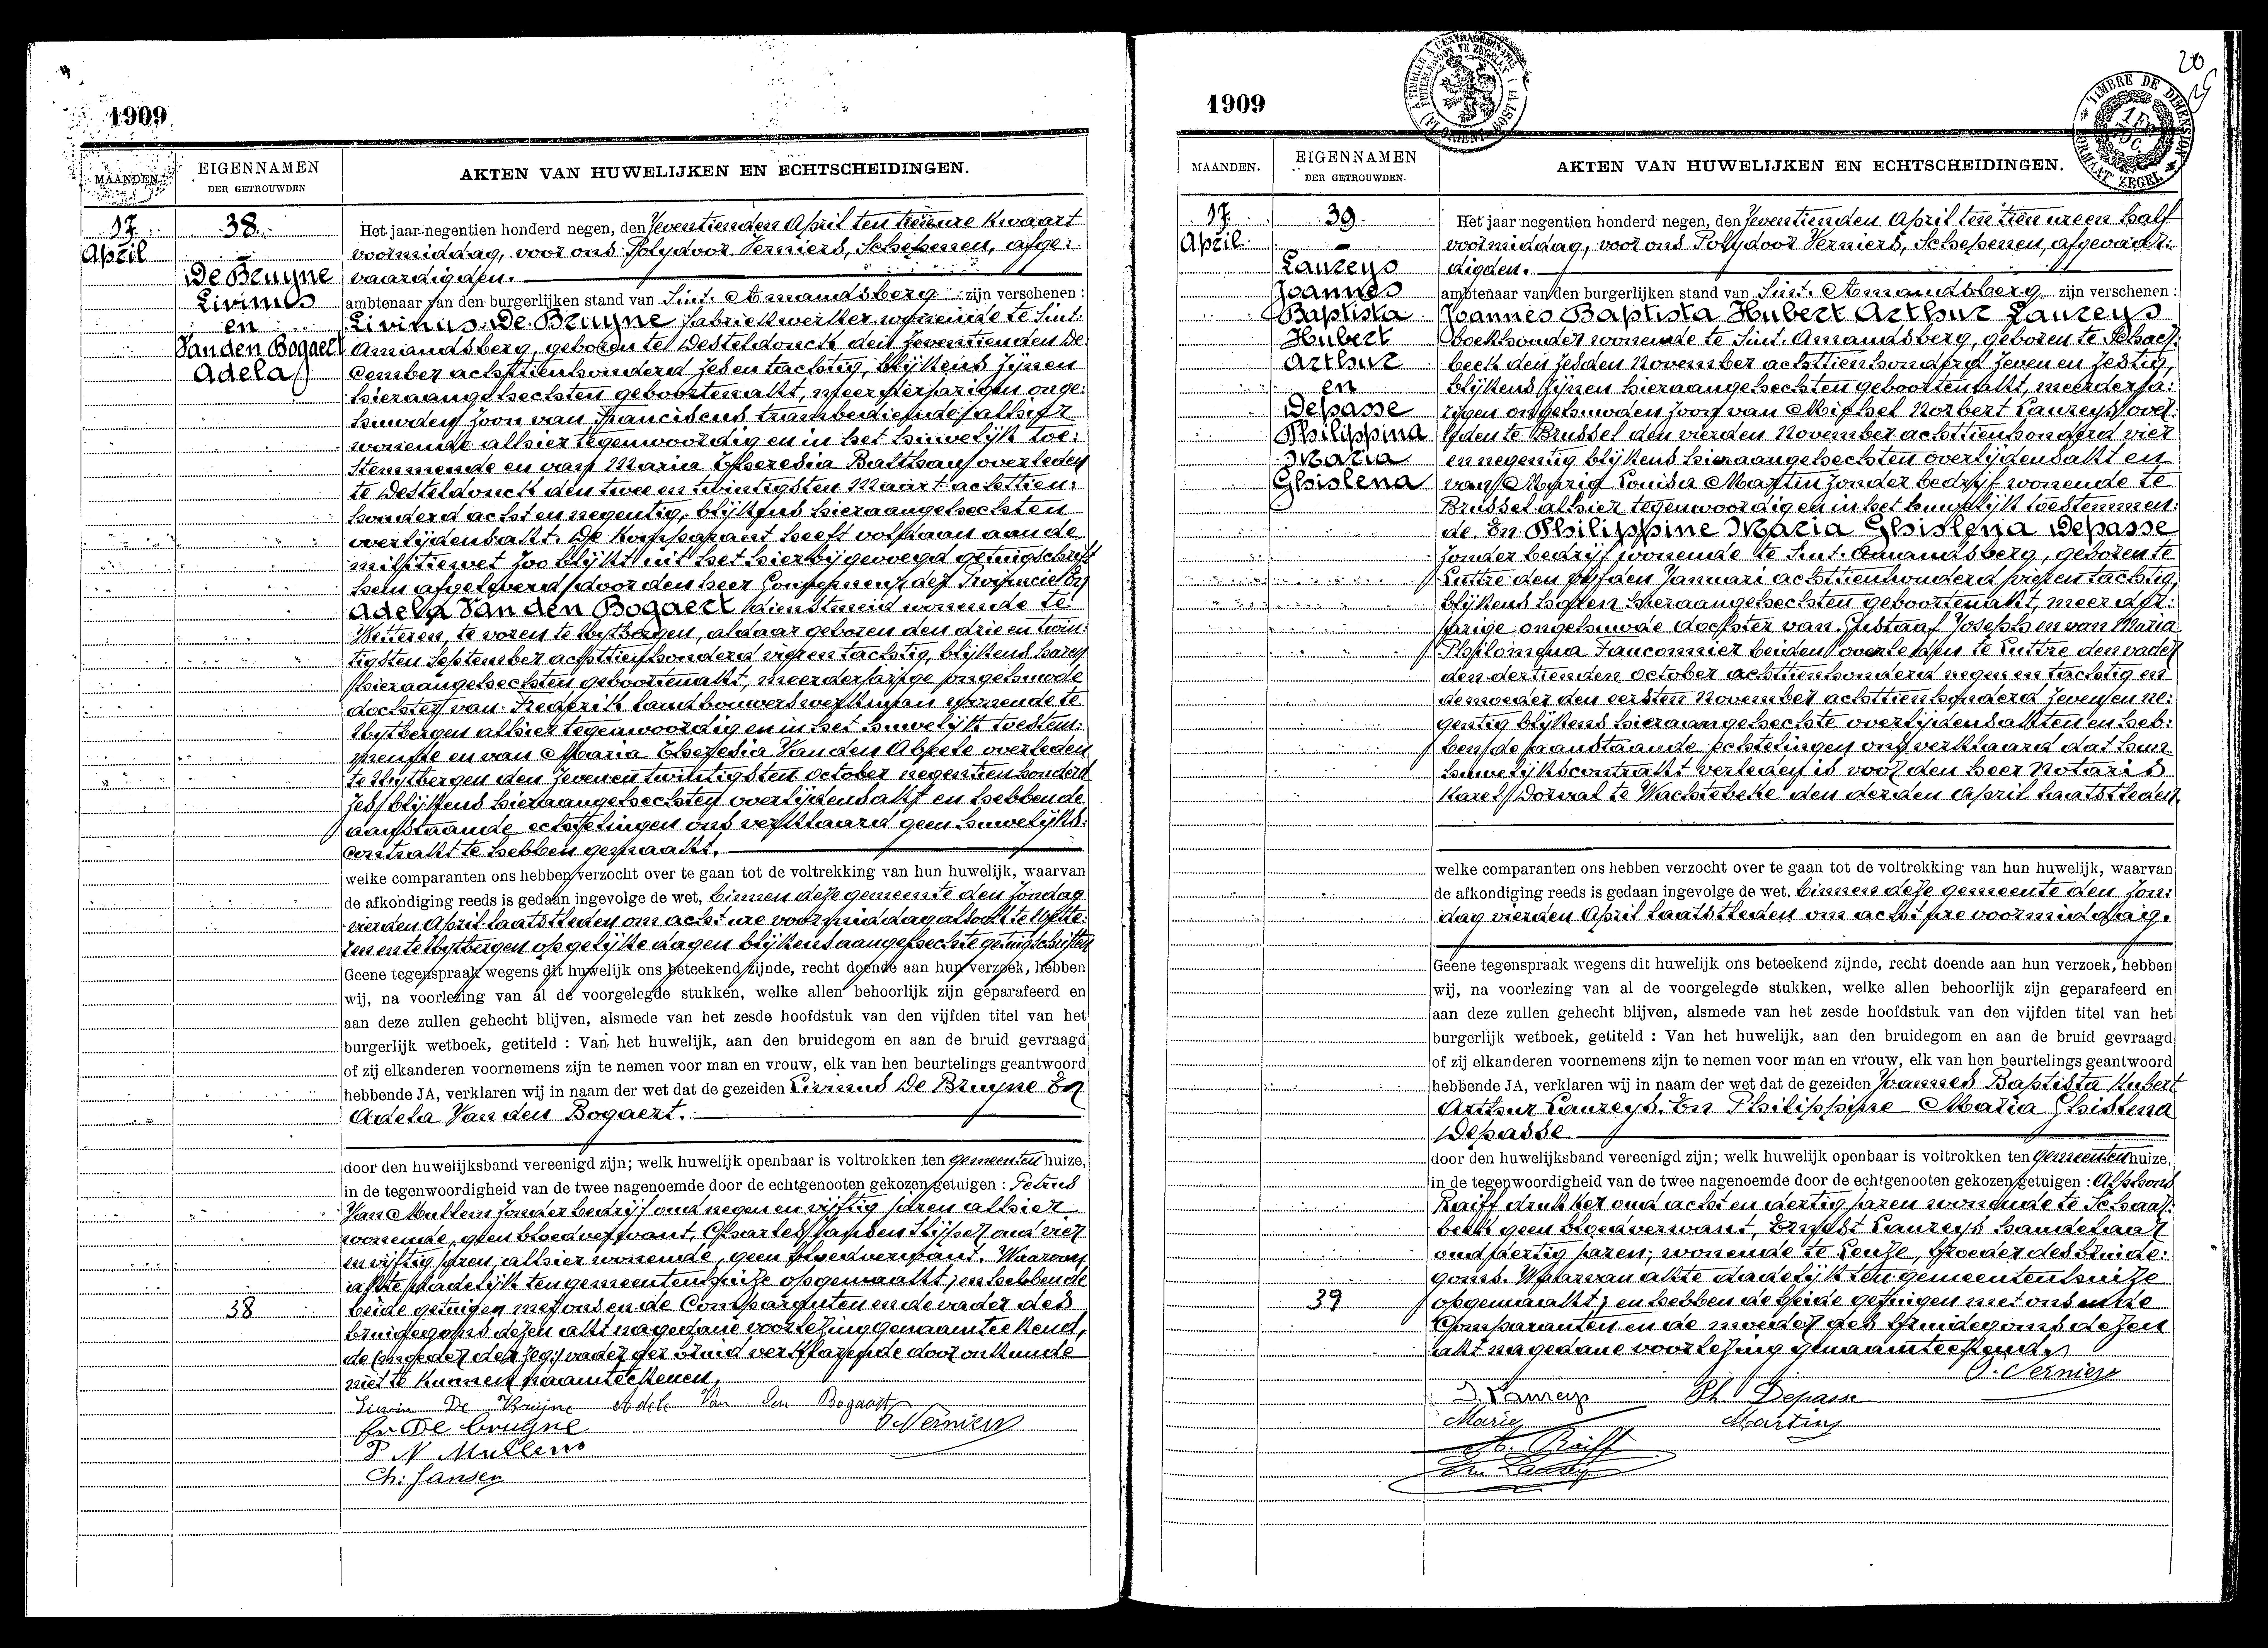 1909
MAANDEN.
EIGENNAMEN
DER GETROUWDEN
AKTEN VAN HUWELIJKEN EN ECHTSCHEIDINGEN.
17
April
38
De Bruyne
Livinus
en
Van den Bogaert
Adela
Het jaar negentien honderd negen, den Zeventienden April ten tien ure kwaart
voormiddag, voor ons Polydoor Verniers, Schepenen, afge:
vaardigden.
ambtenaar van den burgerlijken stand van Sint. Amandsberg zijn verschenen :
Livinus De Bruyne fabriekwerker wonende te Sint.
Amandsberg, geboren te Desteldonck den Zeventienden De
cember achttienhonderd zes en tachtig, blijkens zijnen
hieraangehechten geboortenakt, meerderjarigen onge:
huwden zoon van Franciscus trambediende alhier
wonende alhier tegenwoordig en in het huwelijk toe:
stemmende en van Maria Theresia Balthau overleden
te Desteldonck den twee en twintigsten Maart achttien:
honderd acht en negentig, blijkens hieraangehechten
overlijdensakt. De Komparant heeft voldaan aan de
militiewet zoo blijkt uit het hierbij gevoegd getuigschrift
hem afgeleverd door den heer Gouverneur der Provincie En
Adela Van den Bogaert dienstmeid wonende te
Wetteren, te voren te Uytbergen, aldaar geboren den drie en twin:
tigsten September achttienhonderd vier en tachtig, blijkens haren
hieraangehechten geboortenakt, meerderjarige ongehuwde
dochter van Frederik landbouwerswerkman wonende te
Uytbergen alhier tegenwoordig en in het huwelijk toestem:
mende en van Maria Theresia Van den Abeele overleden
te Uytbergen den zeven en twintigsten October negentienhonderd
zes blijkens hieraangehechten overlijdensakt en hebben de
aanstaande echtelingen ons verklaard geen huwelijks:
contrakt te hebben gemaakt.
welke comparanten ons hebben verzocht over te gaan tot de voltrekking van hun huwelijk, waarvan
de afkondiging reeds is gedaan ingevolge de wet, binnen deze gemeente den Zondag
vierden April laatstleden om acht ure voormiddag alsook te Wette:
ren en te Uytbergen op gelijke dagen blijkens aangehechte getuigschriften
Geene tegenspraak wegens dit huwelijk ons beteekend zijnde, recht doende aan hun verzoek, hebben
wij, na voorlezing van al de voorgelegde stukken, welke allen behoorlijk zijn geparafeerd en
aan deze zullen gehecht blijven, alsmede van het zesde hoofdstuk van den vijfden titel van het
burgerlijk wetboek, getiteld : Van het huwelijk, aan den bruidegom en aan de bruid gevraagd
of zij elkanderen voornemens zijn te nemen voor man en vrouw, elk van hen beurtelings geantwoord
hebbende JA, verklaren wij in naam der wet dat de gezeiden Livinus De Bruyne En
Adela Van den Bogaert.
door den huwelijksband vereenigd zijn; welk huwelijk openbaar is voltrokken ten gemeenten huize,
in de tegenwoordigheid van de twee nagenoemde door de echtgenooten gekozen getuigen : Petrus
Van Mullem zonder bedrijf oud negen en vijftig jaren alhier
wonende, geen bloedverwant, Charles Jansen stijver, oud vier
en vijftig jaren, alhier wonende, geen bloedverwant. Waarvan
akte dadelijk ten gemeentenhuize opgemaakt; en hebben de
38
beide getuigen met ons en de Comparanten en de vader des
bruidegoms dezen akt na gedane voorlezing genaamteekend,
vader der bruid verklarende door onkunde
niet te kunnen naamteekenen.
Livin De Bruijne Adele Van den Bogaert
Fr De bruyne P. Verniers
P V Mullem
Ch. Jansen
1909
20
TIMBRE DE DIMENSION
FORMAAT ZEGEL
MAANDEN.
EIGENNAMEN
DER GETROUWDEN.
AKTEN VAN HUWELIJKEN EN ECHTSCHEIDINGEN.
17
April
39
Laureys
Joannes
Baptista
Hubert
Arthur
en
Depasse
Philippina
Maria
Ghislena
Het jaar negentien honderd negen, den Zeventienden April ten tien ure en half
voormiddag, voor ons Polydoor Verniers, Schepenen, afgevaar:
digden.
ambtenaar van den burgerlijken stand van Sint. Amandsberg zijn verschenen :
Joannes Baptista Hubert Arthur Laureys
boekhouder wonende te Sint. Amandsberg, geboren te Schaer:
beek den zesden November achttienhonderd zeven en zestig,
blijkens zijnen hieraangehechten geboortenakt, meerderja:
rigen ongehuwden zoon van Michel Norbert Laureys over:
leden te Brussel den vierden November achttienhonderd vier
en negentig blijkens hieraangehechten overlijdensakt en
van Marie Louisa Martin zonder bedrijf wonende te
Brussel alhier tegenwoordig en in het huwelijk toestemmen:
de. En Philippine Maria Ghislena Depasse
zonder bedrijf wonende te Sint. Amandsberg, geboren te
Luttre den vijfden Januari achttienhonderd vier en tachtig,
blijkens haren hieraangehechten geboortenakt, meerder:
jarige ongehuwde dochter van Gustaaf Joseph en van Maria
Philomena Fauconnier beiden overleden te Luttre den vader
den dertienden October achttienhonderd negen en tachtig en
de moeder den eersten November achttienhonderd zeven en ne:
gentig blijkens hieraangehechte overlijdensakten en heb:
ben de aanstaande echtelingen ons verklaard dat hun
huwelijkscontrakt verleden is voor den heer Notaris
Karel Dorval te Wachtebeke den derden April laatstleden.
welke comparanten ons hebben verzocht over te gaan tot de voltrekking van hun huwelijk, waarvan
de afkondiging reeds is gedaan ingevolge de wet, binnen deze gemeente den Zon:
dag vierden April laatstleden om acht ure voormiddag.
Geene tegenspraak wegens dit huwelijk ons beteekend zijnde, recht doende aan hun verzoek, hebben
wij, na voorlezing van al de voorgelegde stukken, welke allen behoorlijk zijn geparafeerd en
aan deze zullen gehecht blijven, alsmede van het zesde hoofdstuk van den vijfden titel van het
burgerlijk wetboek, getiteld : Van het huwelijk, aan den bruidegom en aan de bruid gevraagd
of zij elkanderen voornemens zijn te nemen voor man en vrouw, elk van hen beurtelings geantwoord
hebbende JA, verklaren wij in naam der wet dat de gezeiden Joannes Baptista Hubert
Arthur Laureys. En Philippine Maria Ghislena
Depasse
door den huwelijksband vereenigd zijn; welk huwelijk openbaar is voltrokken ten gemeenten huize,
in de tegenwoordigheid van de twee nagenoemde door de echtgenooten gekozen getuigen : Alphons
Raiff drukker oud acht en dertig jaren wonende te Schaar:
beek geen bloedverwant, Ernest Laureys handelaar
oud dertig jaren, wonende te Leuze, broeder des bruide:
goms. Waarvan akte dadelijk ten gemeentenhuize
39
opgemaakt; en hebben de beide getuigen met ons en de
Comparanten en de moeder des bruidegoms dezen
akt na gedane voorlezing genaamteekend.
P. Verniers
J. Laureys Ph Depasse
Marie Martin
A. Raiff